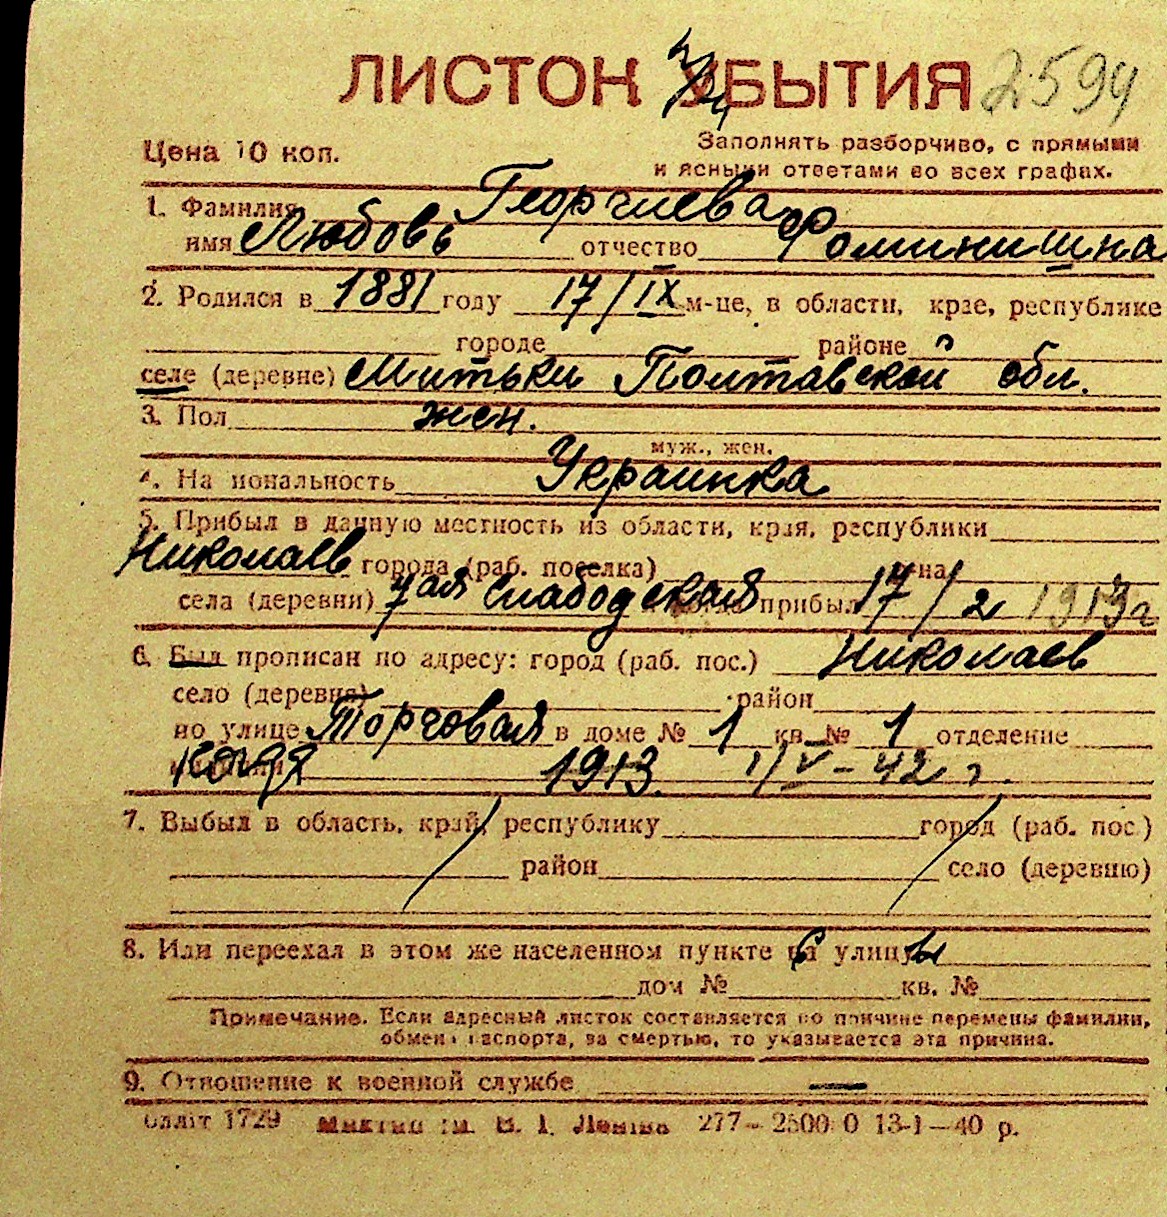 ЛИСТОК УБЫТИЯ 2594
Цена 10 коп.
Заполнять разборчиво, с прямыми
и ясными ответами во всех графах.
1. Фамилия Георгиева
имя Любовь отчество Фоминишна
2. Родился в 1881 году 17/IX м-це, в области, крае, республике
городе районе
селе (деревне) Митьки Полтавской обл.
3. Пол жен.
муж., жен.
4. Национальность Украинка
5. Прибыл в данную местность из области, края, республики
Николаев города (раб. поселка)
села (деревни) 7ая Слободская когда прибыл 17/2 1913г
6. Был прописан по адресу: город (раб. пос.) Николаев
село (деревня) район
по улице Торговая в доме № 1 кв. № 1 отделение
когда 1913. 1/V-42 г.
7. Выбыл в область, край, республику город (раб. пос.)
район село (деревню)
8. Или переехал в этом же населенном пункте улицы
дом № кв. №
Примечание. Если адресный листок составляется по причине перемены фамилии,
обмена паспорта, за смертью, то указывается эта причина.
9. Отношение к военной службе —
Облліт 1729 ім. В. І. Леніна 277— 2500 0 13-1—40 р.